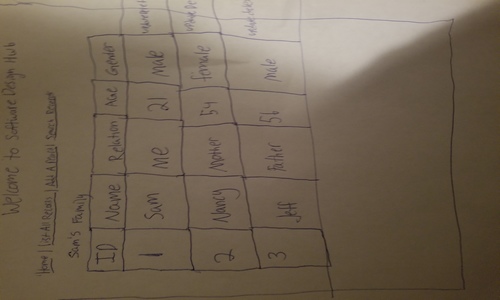 Welcome to Software Design Hub
Home | List All Records | Add A Record | Search Record
Sam's Family
ID Name Relation Age Gender
1 Sam Me 21 Male update
2 Nancy Mother 54 female update De
3 Jeff Father 56 male update